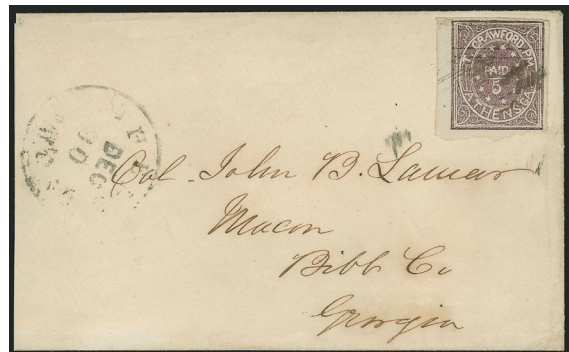 T. CRAWFORD, P.M.
PAID
5
ATHENS, GA.
DEC
30
Col. John B. Lamar
Macon
Bibb Co
Georgia